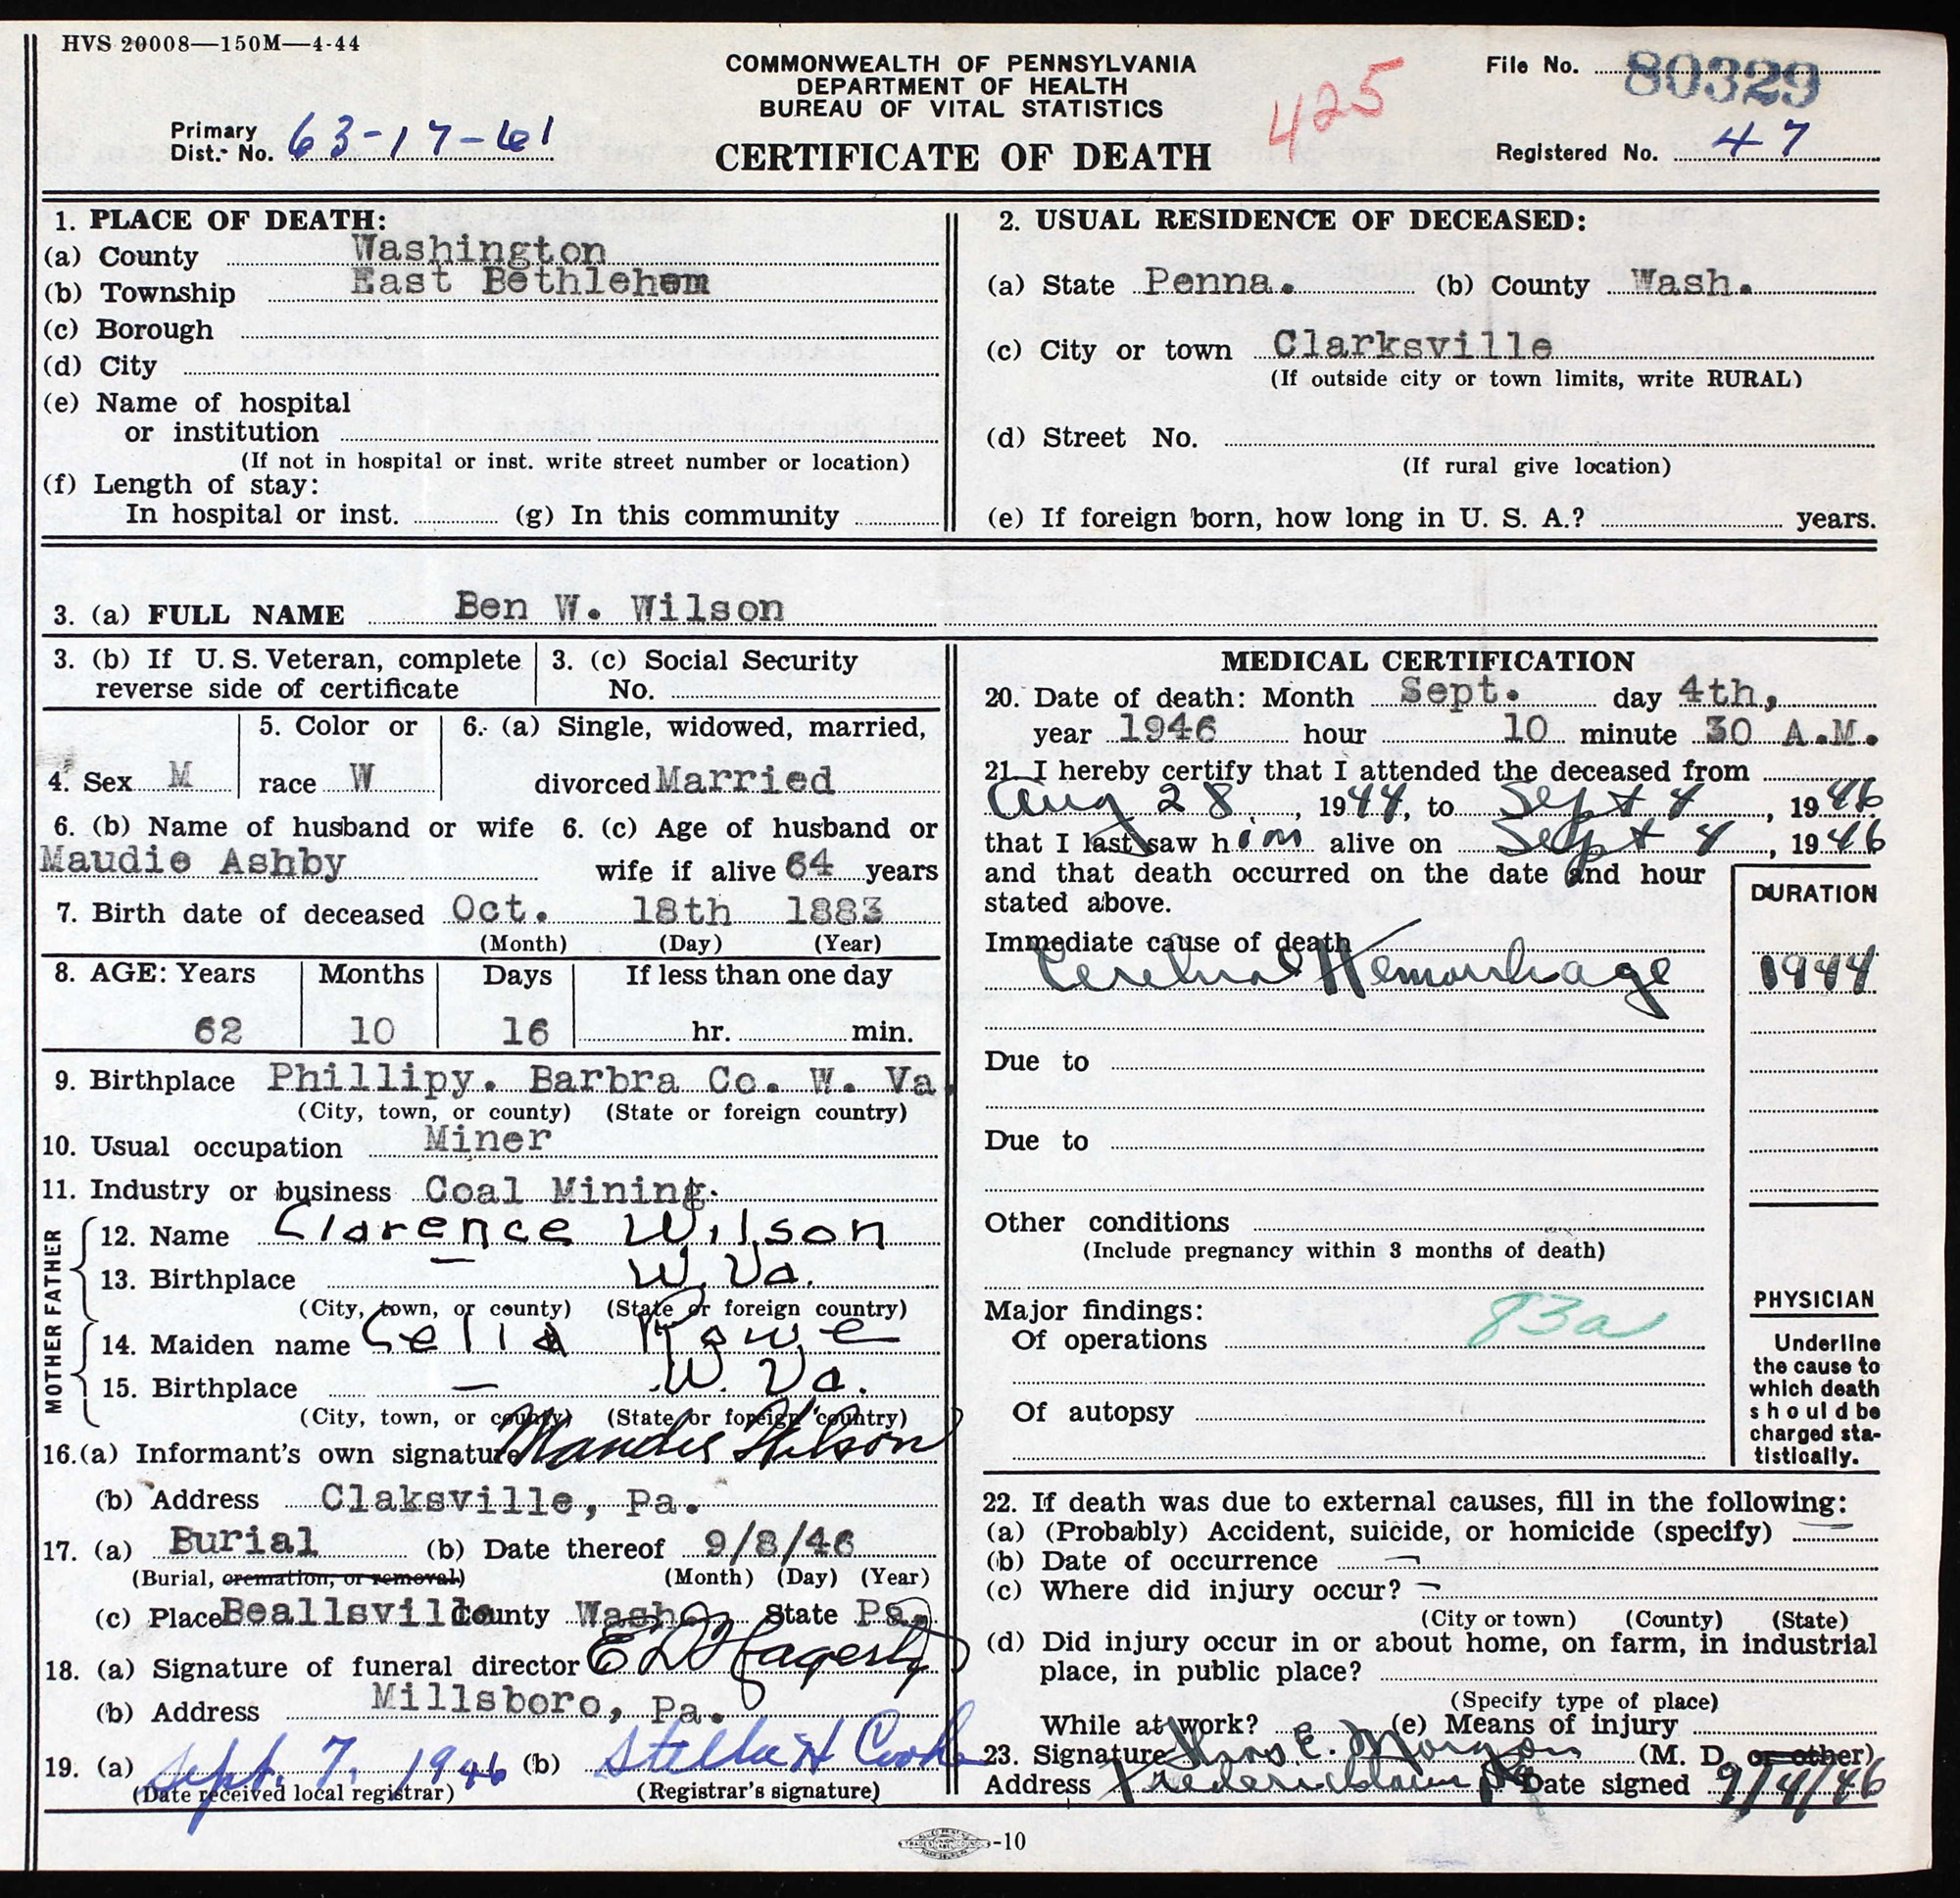 HVS 20008—150M—4-44
COMMONWEALTH OF PENNSYLVANIA
DEPARTMENT OF HEALTH
BUREAU OF VITAL STATISTICS
CERTIFICATE OF DEATH
425
File No. 80329
Primary
Dist. No. 63-17-61
Registered No. 47
1. PLACE OF DEATH:
(a) County Washington
(b) Township East Bethlehem
(c) Borough
(d) City
(e) Name of hospital
or institution
(If not in hospital or inst. write street number or location)
(f) Length of stay:
In hospital or inst. (g) In this community
2. USUAL RESIDENCE OF DECEASED:
(a) State Penna. (b) County Wash.
(c) City or town Clarksville
(If outside city or town limits, write RURAL)
(d) Street No.
(If rural give location)
(e) If foreign born, how long in U. S. A.? years.
3. (a) FULL NAME Ben W. Wilson
3. (b) If U. S. Veteran, complete
reverse side of certificate
3. (c) Social Security
No.
4. Sex M
5. Color or
race W
6. (a) Single, widowed, married,
divorced Married
6. (b) Name of husband or wife
Maudie Ashby
6. (c) Age of husband or
wife if alive 64 years
7. Birth date of deceased Oct. 18th 1883
(Month) (Day) (Year)
8. AGE: Years Months Days If less than one day
62 10 16 hr. min.
9. Birthplace Phillipy. Barbra Co. W. Va.
(City, town, or county) (State or foreign country)
10. Usual occupation Miner
11. Industry or business Coal Mining.
FATHER
12. Name Clarence Wilson
13. Birthplace — W. Va.
(City, town, or county) (State or foreign country)
MOTHER
14. Maiden name Celia Rowe
15. Birthplace — W. Va.
(City, town, or county) (State or foreign country)
16.(a) Informant's own signature Maudie Wilson
(b) Address Claksville, Pa.
17. (a) Burial (b) Date thereof 9/8/46
(Burial, cremation, or removal) (Month) (Day) (Year)
(c) Place Beallsville County Wash. State Pa.
18. (a) Signature of funeral director E D Hagerty
(b) Address Millsboro, Pa.
19. (a) Sept. 7, 1946 (b) Stella H Cooke
(Date received local registrar) (Registrar's signature)
MEDICAL CERTIFICATION
20. Date of death: Month Sept. day 4th,
year 1946 hour 10 minute 30 A.M.
21. I hereby certify that I attended the deceased from
Aug 28, 1944, to Sept 4, 1946
that I last saw him alive on Sept 4, 1946
and that death occurred on the date and hour
stated above.
DURATION
Immediate cause of death
Cerebral Hemorrhage 1944
Due to
Due to
Other conditions
(Include pregnancy within 3 months of death)
Major findings: 83a
Of operations
Of autopsy
PHYSICIAN
Underline
the cause to
which death
should be
charged sta-
tistically.
22. If death was due to external causes, fill in the following:
(a) (Probably) Accident, suicide, or homicide (specify) —
(b) Date of occurrence —
(c) Where did injury occur? —
(City or town) (County) (State)
(d) Did injury occur in or about home, on farm, in industrial
place, in public place?
(Specify type of place)
While at work? (e) Means of injury
23. Signature Thos E. Morgan (M. D. or other)
Address Fredericktown Pa Date signed 9/4/46
-10